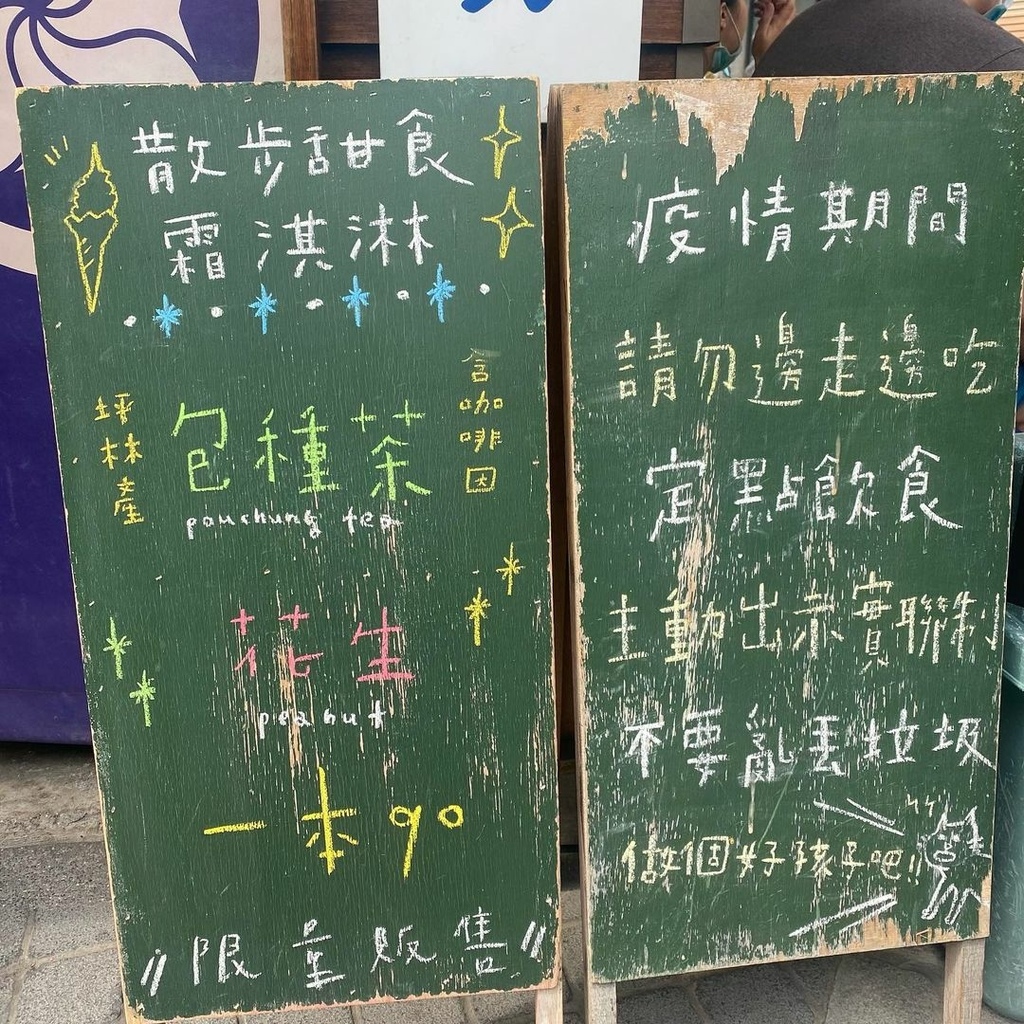 散步甜食
霜淇淋
坪林產
包種茶
含咖啡因
pouchung tea
花生
peanut
一本90
限量販售
疫情期間
請勿邊走邊吃
定點飲食
主動出示實聯制
不要亂丟垃圾
做個好孩子吧!!